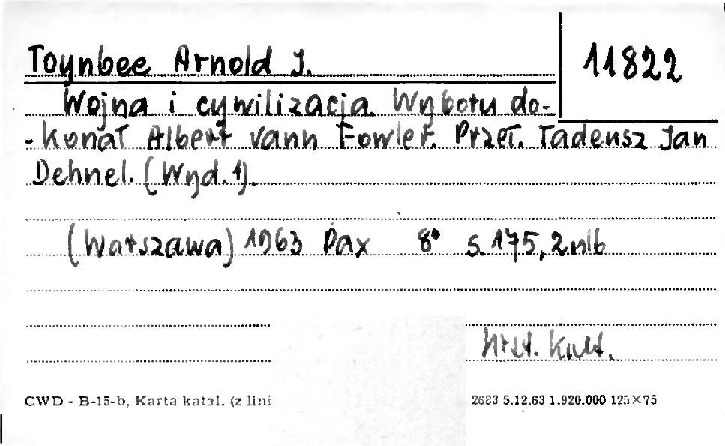 Toynbee Arnold J.
11822
Wojna i cywilizacja. Wyboru do-
-konał Albert Vann Fowler. Przeł. Tadeusz Jan
Dehnel. (Wyd. 1).
(Warszawa) 1963 Pax 8° s. 175, 2 nlb
hist. kult.
CWD - B-15-b, Karta katal. (z lini
2683 5.12.63 1.920.000 125×75